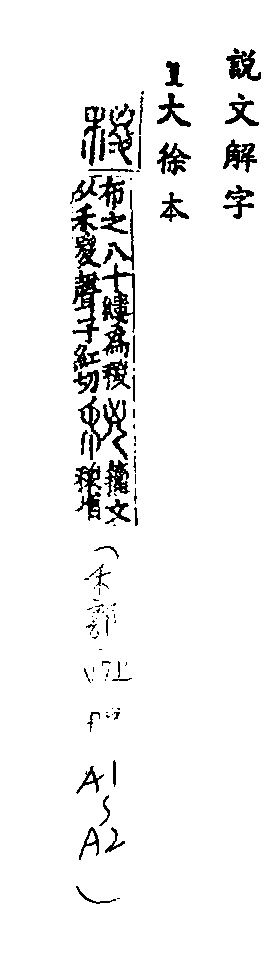 説文解字
1大徐本
稯
布之八十縷為稯 籒文
从禾㚇聲子紅切 稯省
(禾部
A1
A2
)